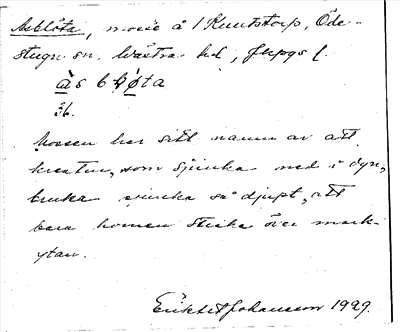 Asblöta, mosse å 1 Knutstorp, Öde-
stugu sn. Västra hd, Jkpgs l.
ås b øta
36.
Mossen har sitt namn av att
kreatur, som sjunka ned i dyn,
bruka sjunka så djupt, att
bara hornen sticka över mark-
ytan.
Johansson 1929.